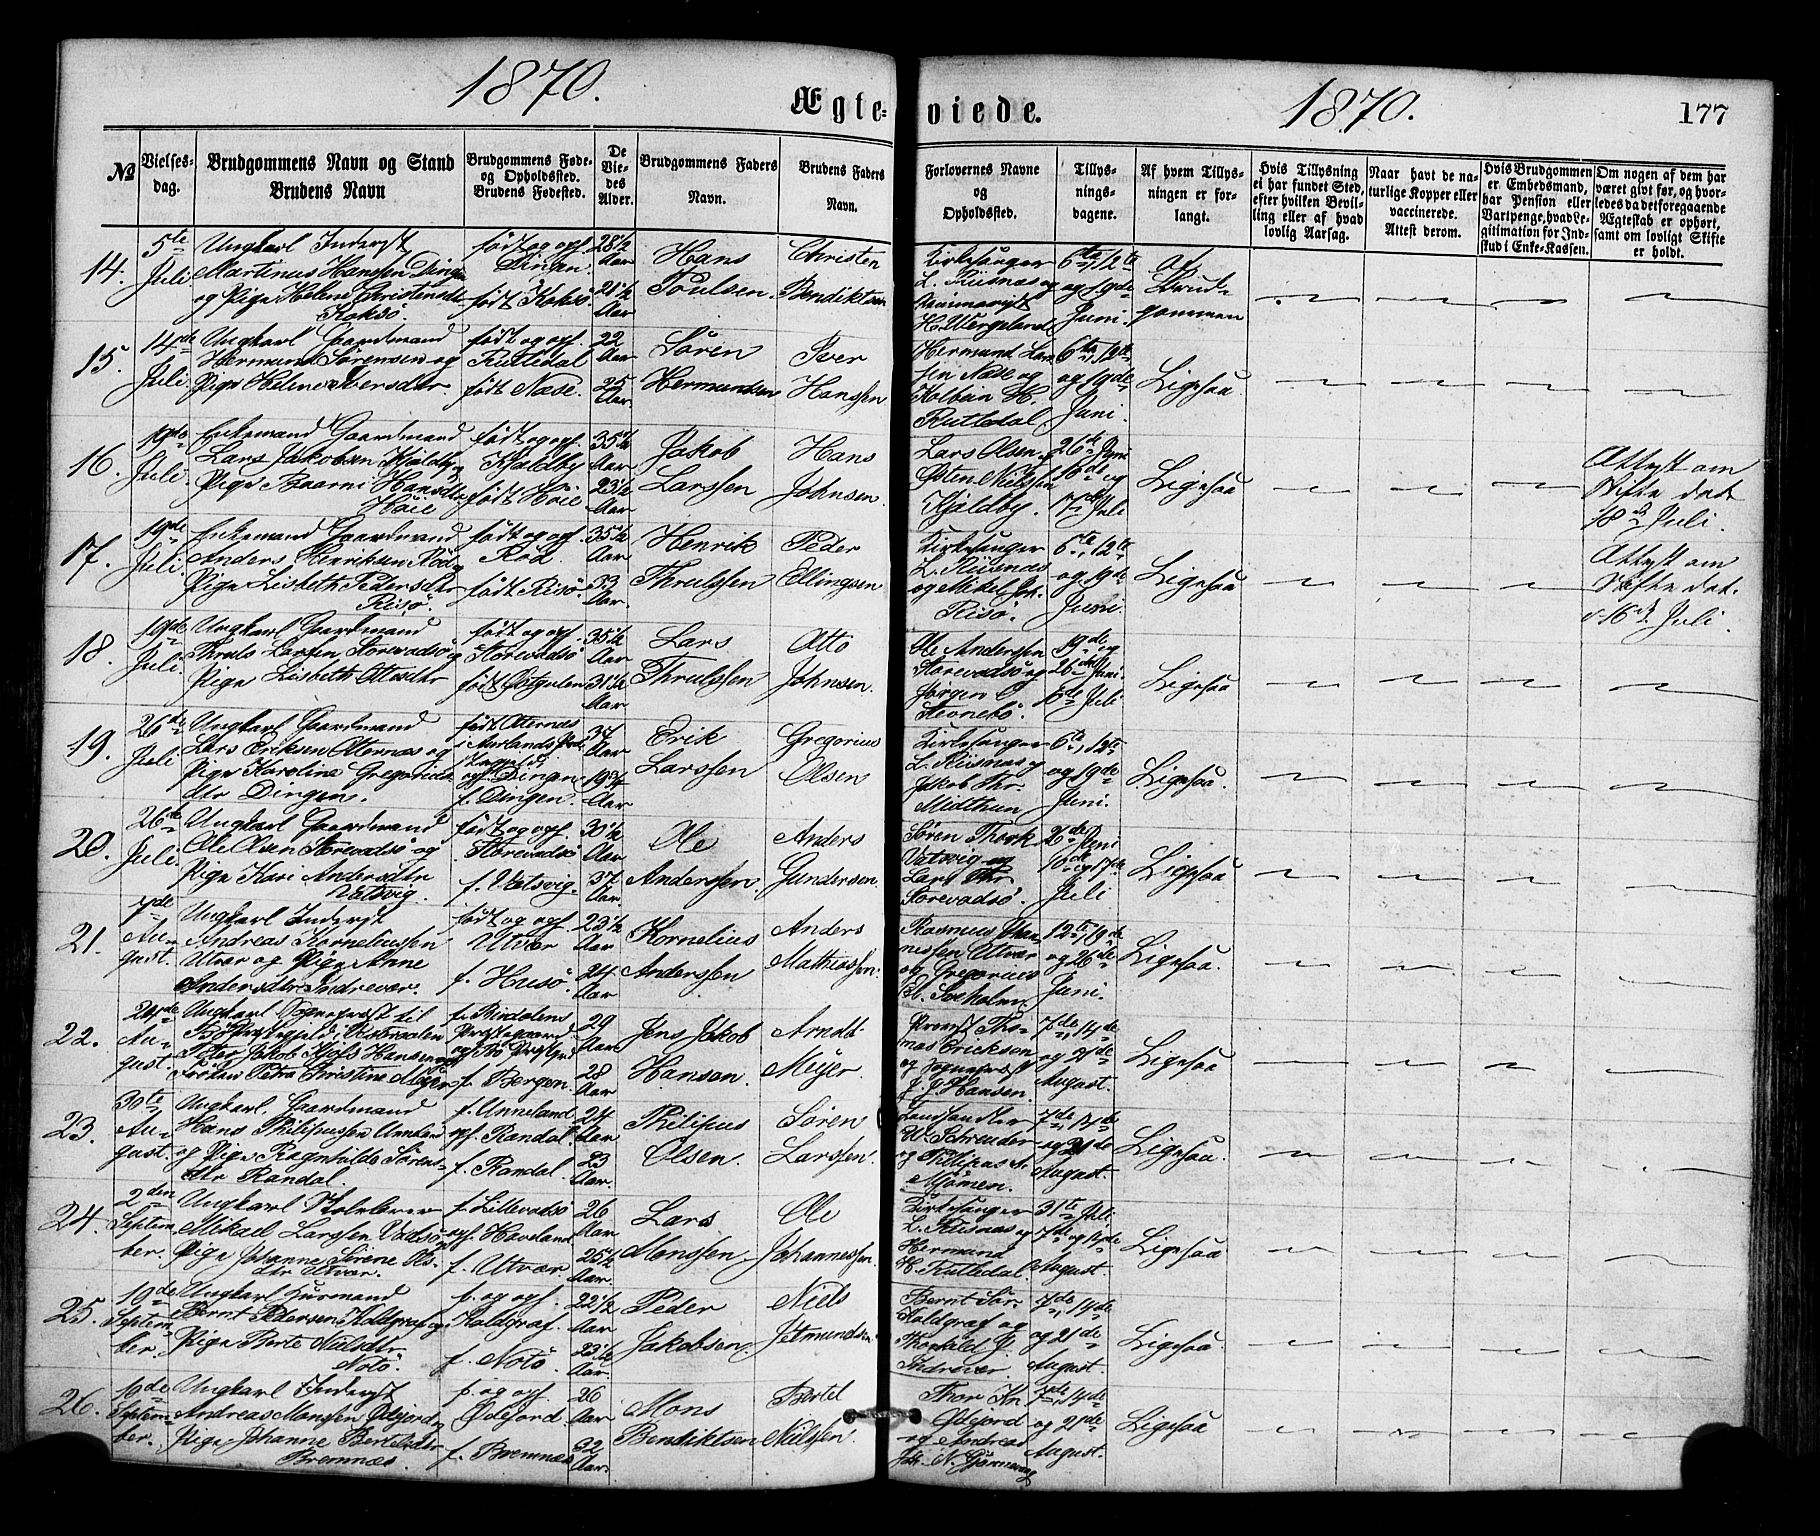 1870.
Ægte-
viede.
1870.
177
№
Vielses-
dag.
Brudgommens Navn og Stand
Brudens Navn
Brudgommens Føde-
og Opholdssted.
Brudens Fødested.
De
Vie-
des
Alder.
Brudgommens Faders
Navn.
Brudens Faders
Navn.
Forlovernes Navne
og
Opholdssted.
Tillys-
nings-
dagene.
Af hvem Tillys-
ningen er for-
langt.
Hvis Tillysning
ei har fundet Sted,
efter hvilken Bevil-
ling eller af hvad
lovlig Aarsag.
Naar havt de na-
turlige Kopper eller
vaccinerede.
Attest derom.
Hvis Brudgommen
er Embedsmand,
har Pension eller
Vartpenge, hvad Le-
gitimation for Ind-
skud i Enke-Kassen.
Om nogen af dem har
været givt før, og hvor-
ledes da det foregaaende
Ægteskab er ophørt,
samt om lovligt Skifte
er holdt.
14.
5te
Juli
Ungkarl Inderst
Martinus Hanssen Dingen
og Pige Helene Christensdtr
Koksö.
født og opf.
Dingen.
født Koksö.
28 1/2
Aar
21 1/2
Aar
Hans
Poulsen
Christen
Bendiktsen
Kirkesanger
L. Riisnæs og
H. Wergeland
6te, 12te
og 19de
Juni.
af
Brud-
gommen
15.
14de
Juli
Ungkarl Gaardmand
Hermund Sörensen og
Pige Helene Iversdtr.
født og opf.
Rutledal
født Nase.
22
Aar
25
Aar.
Sören
Hermundsen
Iver
Hanssen
Hermund Lars
sen Nase og
Kolbein H.
Rutledal
6te, 12te
og 19de
Juni.
Ligesaa
16.
19de
Juli
Enkemand Gaardmand
Lars Jakobsen Kjeldby
Pige Baarni Hansdtr
Höie
født og opf.
Kjeldby
født Höie
35 1/2
Aar
23 1/2
Aar
Jakob
Larssen
Hans
Johnsen
Lars Olsen
Østen Nielssen
Kjeldby.
26de Juni
10de og
17de Juli
Ligesaa
Attest om
Skifte dat.
18d Juli.
17.
19de
Juli.
Enkemand Gaardmand
Anders Henriksen Röd og
Pige Lisbeth Pedersdtr
Risö.
født og opf.
Röd
født Risö.
35 1/2
Aar
33
Aar.
Henrik
Thrulssen
Peder
Ellingsen
Kirkesanger
L. Riisnæs
og Mikel Joh.
Risö.
6te, 12te
og 19de
Juni.
Ligesaa
Attest om
Skifte dat.
16d Juli.
18.
19de
Juli
Ungkarl Gaardmand
Thruls Larsen Storevadsö og
Pige Lisbeth Ottesdtr
født og opf.
Storevadsö
født Östgulen
35 1/2
Aar
31 1/2
Aar
Lars
Thrulssen
Otto
Johnsen
Ole Anderssen
Storevadsö og
Jörgen O.
Stevnebö.
19de og
26de Juni
10de Juli
Ligesaa
19.
26de
Juli
Ungkarl Gaardmand
Lars Eriksen Otternæs og
Pige Karoline Gregorius-
dtr Dingen.
født Otternæs
i Aurlands Præ-
stegjeld
opf. Dingen
f. Dingen.
34
Aar
19 3/4
Aar
Erik
Larssen
Gregorius
Olsen
Kirkesanger
L. Riisnæs og
Jakob Thr.
Midthun
6te, 12te
og 19de
Juni.
Ligesaa.
20.
26de
Juli
Ungkarl Gaardmand
Ole Olsen Storevadsö og
Pige Kari Andersdtr
Vatsvig.
født og opf.
Storevadsö
f. Vatsvig.
30 1/2
Aar
37
Aar
Ole
Anderssen
Anders
Gundersen
Sören Thork
Vatsvig og
Lars Thr.
Storevadsö.
26de Juni
10de og 17de
Juli
Ligesaa
21.
7de
Au-
gust.
Ungkarl Inderst
Andreas Korneliussen
Utvær og Pige Anne
Andersdtr Indrevær.
født og opf.
Utvær
f. Husö.
23 1/2
Aar
24
Aar
Kornelius
Anderssen
Anders
Mathiassen.
Rasmus Han-
nessen Utvær
og Gregorius
A. Soeholm.
12te, 19de
og 26de
Juni.
Ligesaa.
22.
24de
Au-
gust.
Ungkarl Sogneprest til
Bö Prestegjeld i Vesteraalen
Peter Jakob Hjort Hansen og
Fröken Petra Christine Meyer
f. Rindalens
Prestegaard
og Bö Prestgd
f. Bergen.
29
Aar
28
Aar
Jens Jakob
Hansen.
Arndt
Meyer
Provst Tho-
mas Erickson
og Sogneprest
J. J. Hansen.
7de, 14de
og 21de
August.
Ligesaa
23.
30te
Au-
gust.
Ungkarl Gaardmand
Hans Philipussen Unneland
og Pige Ragnhilde Sörens-
dtr Randal.
f. Unneland
opf. Randal
f. Randal
24
Aar
23
Aar.
Philipus
Olsen.
Sören
Larssen.
Landhandler
W. Schreuder
og Phillipus A.
Mjömen.
7de, 14de
og 21de
August.
Ligesaa.
24.
2den
Septem-
ber.
Ungkarl Skolelærer
Mikael Larssen Vadsö og
Pige Johanne Sirene Ols-
dtr Utvær.
f. Lillevadsö
opf. Haveland
f. Utvær
26
Aar
25 1/2
Aar.
Lars
Monssen
Ole
Johannessen.
Kirkesanger
L. Riisnæs og
Hermund
H. Rutledal.
31te Juli
7de og 14de
August.
Ligesaa
25.
19de
Septem-
ber.
Ungkarl Huusmand
Bernt Pedersen Koldgraf og
Pige Berte Nielsdtr
Notö.
f. og opf.
Koldgraf.
f. Notö
22 1/2
Aar
23 1/2
Aar.
Peder
Jakobsen.
Niels
Jetmundsen
Bernt Sör.
Koldgraf og
Thorvald J.
Indrevær
7de, 14de
og 21de
August.
Ligesaa
26.
19de
Septem-
ber.
Ungkarl Inderst
Andreas Monssen Ödejord og
Pige Johanne Bertelsdtr
Bremnæs.
f. og opf.
Ödejord.
f. Bremnæs
26
Aar
32
Aar.
Mons
Bendiktsen
Bertel
Nielssen.
Thor Kn.
Ödejord
og Andreas
7de, 14de
og 21de
August.
Ligesaa